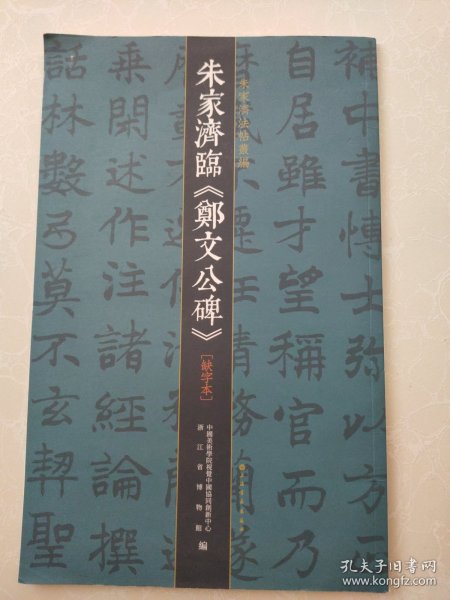 補中書博士弥以
自居雖才望稱官而乃
朱家濟法帖叢編
朱家濟臨《鄭文公碑》
[缺字本]
中國美術學院視覺中國協同創新中心
浙江省博物館
編
乘閑述作注諸經論撰
話林數弓莫不玄契聖
孔夫子旧书网
www.kongfz.com